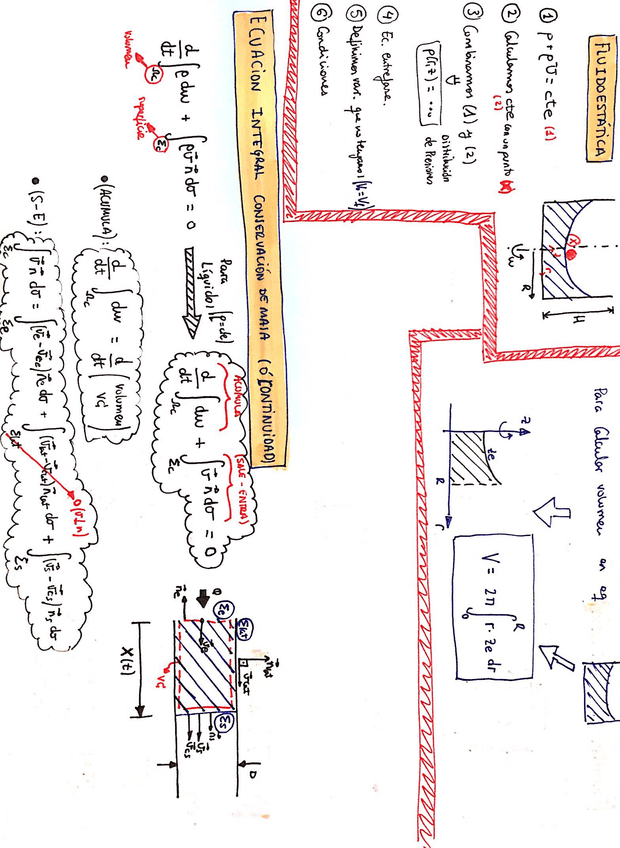 FLUIDOESTÁTICA
① p + ρU = cte (1)
② Calculamos cte con un punto (2)
③ Combinamos (1) y (2)
p(r,z) = ...
Distribución
de Presiones
④ Ec. entrefase.
⑤ Definimos vari. que no tengamos (Vi=Vf)
⑥ Condiciones
H
R
ω
Para Calcular volumen en eq
z
ze
R
r
V = 2π ∫₀ᴿ r · ze dr
ECUACION INTEGRAL CONSERVACIÓN DE MASA (Ó CONTINUIDAD)
d/dt ∫Ωc ρ dω + ∫Σc ρ v̄ n̄ dσ = 0
volumen
superficie
Para Líquidos (ρ=cte)
ACUMULA
(SALE - ENTRA)
d/dt ∫Ωc dω + ∫Σc v̄ n̄ dσ = 0
• (ACUMULA): d/dt ∫Ωc dω = d/dt (volumen VC)
• (S-E): ∫Σc v̄ n̄ dσ = ∫Σe (v̄e - v̄ce) n̄e dσ + ∫Σlat (v̄lat - v̄clat) n̄lat dσ + ∫Σs (v̄s - v̄cs) n̄s dσ
0 (v̄⊥n̄)
Σlat
n̄lat
v̄lat
Φ
Σe
n̄e
v̄e
Σs
n̄s
v̄s
v̄cs
VC
D
X(t)